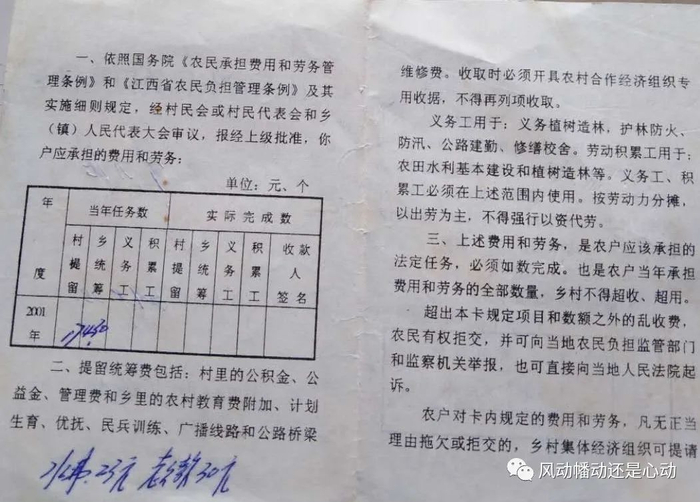 一、依照国务院《农民承担费用和劳务管
理条例》和《江西省农民负担管理条例》及其
实施细则规定，经村民会或村民代表会和乡
（镇）人民代表大会审议，报经上级批准，你
户应承担的费用和劳务：
单位：元、个
年度 当年任务数 实际完成数
村提留 乡统筹 义务工 积累工 村提留 乡统筹 义务工 积累工 收款人签名
2001年
二、提留统筹费包括：村里的公积金、公
益金、管理费和乡里的农村教育费附加、计划
生育、优抚、民兵训练、广播线路和公路桥梁
水费.23元
维修费。收取时必须开具农村合作经济组织专
用收据，不得再列项收取。
义务工用于：义务植树造林，护林防火、
防汛、公路建勤、修缮校舍。劳动积累工用于；
农田水利基本建设和植树造林等。义务工、积
累工必须在上述范围内使用。按劳动力分摊，
以出劳为主，不得强行以资代劳。
三、上述费用和劳务，是农户应该承担的
法定任务，必须如数完成。也是农户当年承担
费用和劳务的全部数量，乡村不得超收、超用。
超出本卡规定项目和数额之外的乱收费，
农民有权拒交，并可向当地农民负担监管部门
和监察机关举报，也可直接向当地人民法院起
诉。
农户对卡内规定的费用和劳务，凡无正当
理由拖欠或拒交的，乡村集体经济组织可提请
风动幡动还是心动